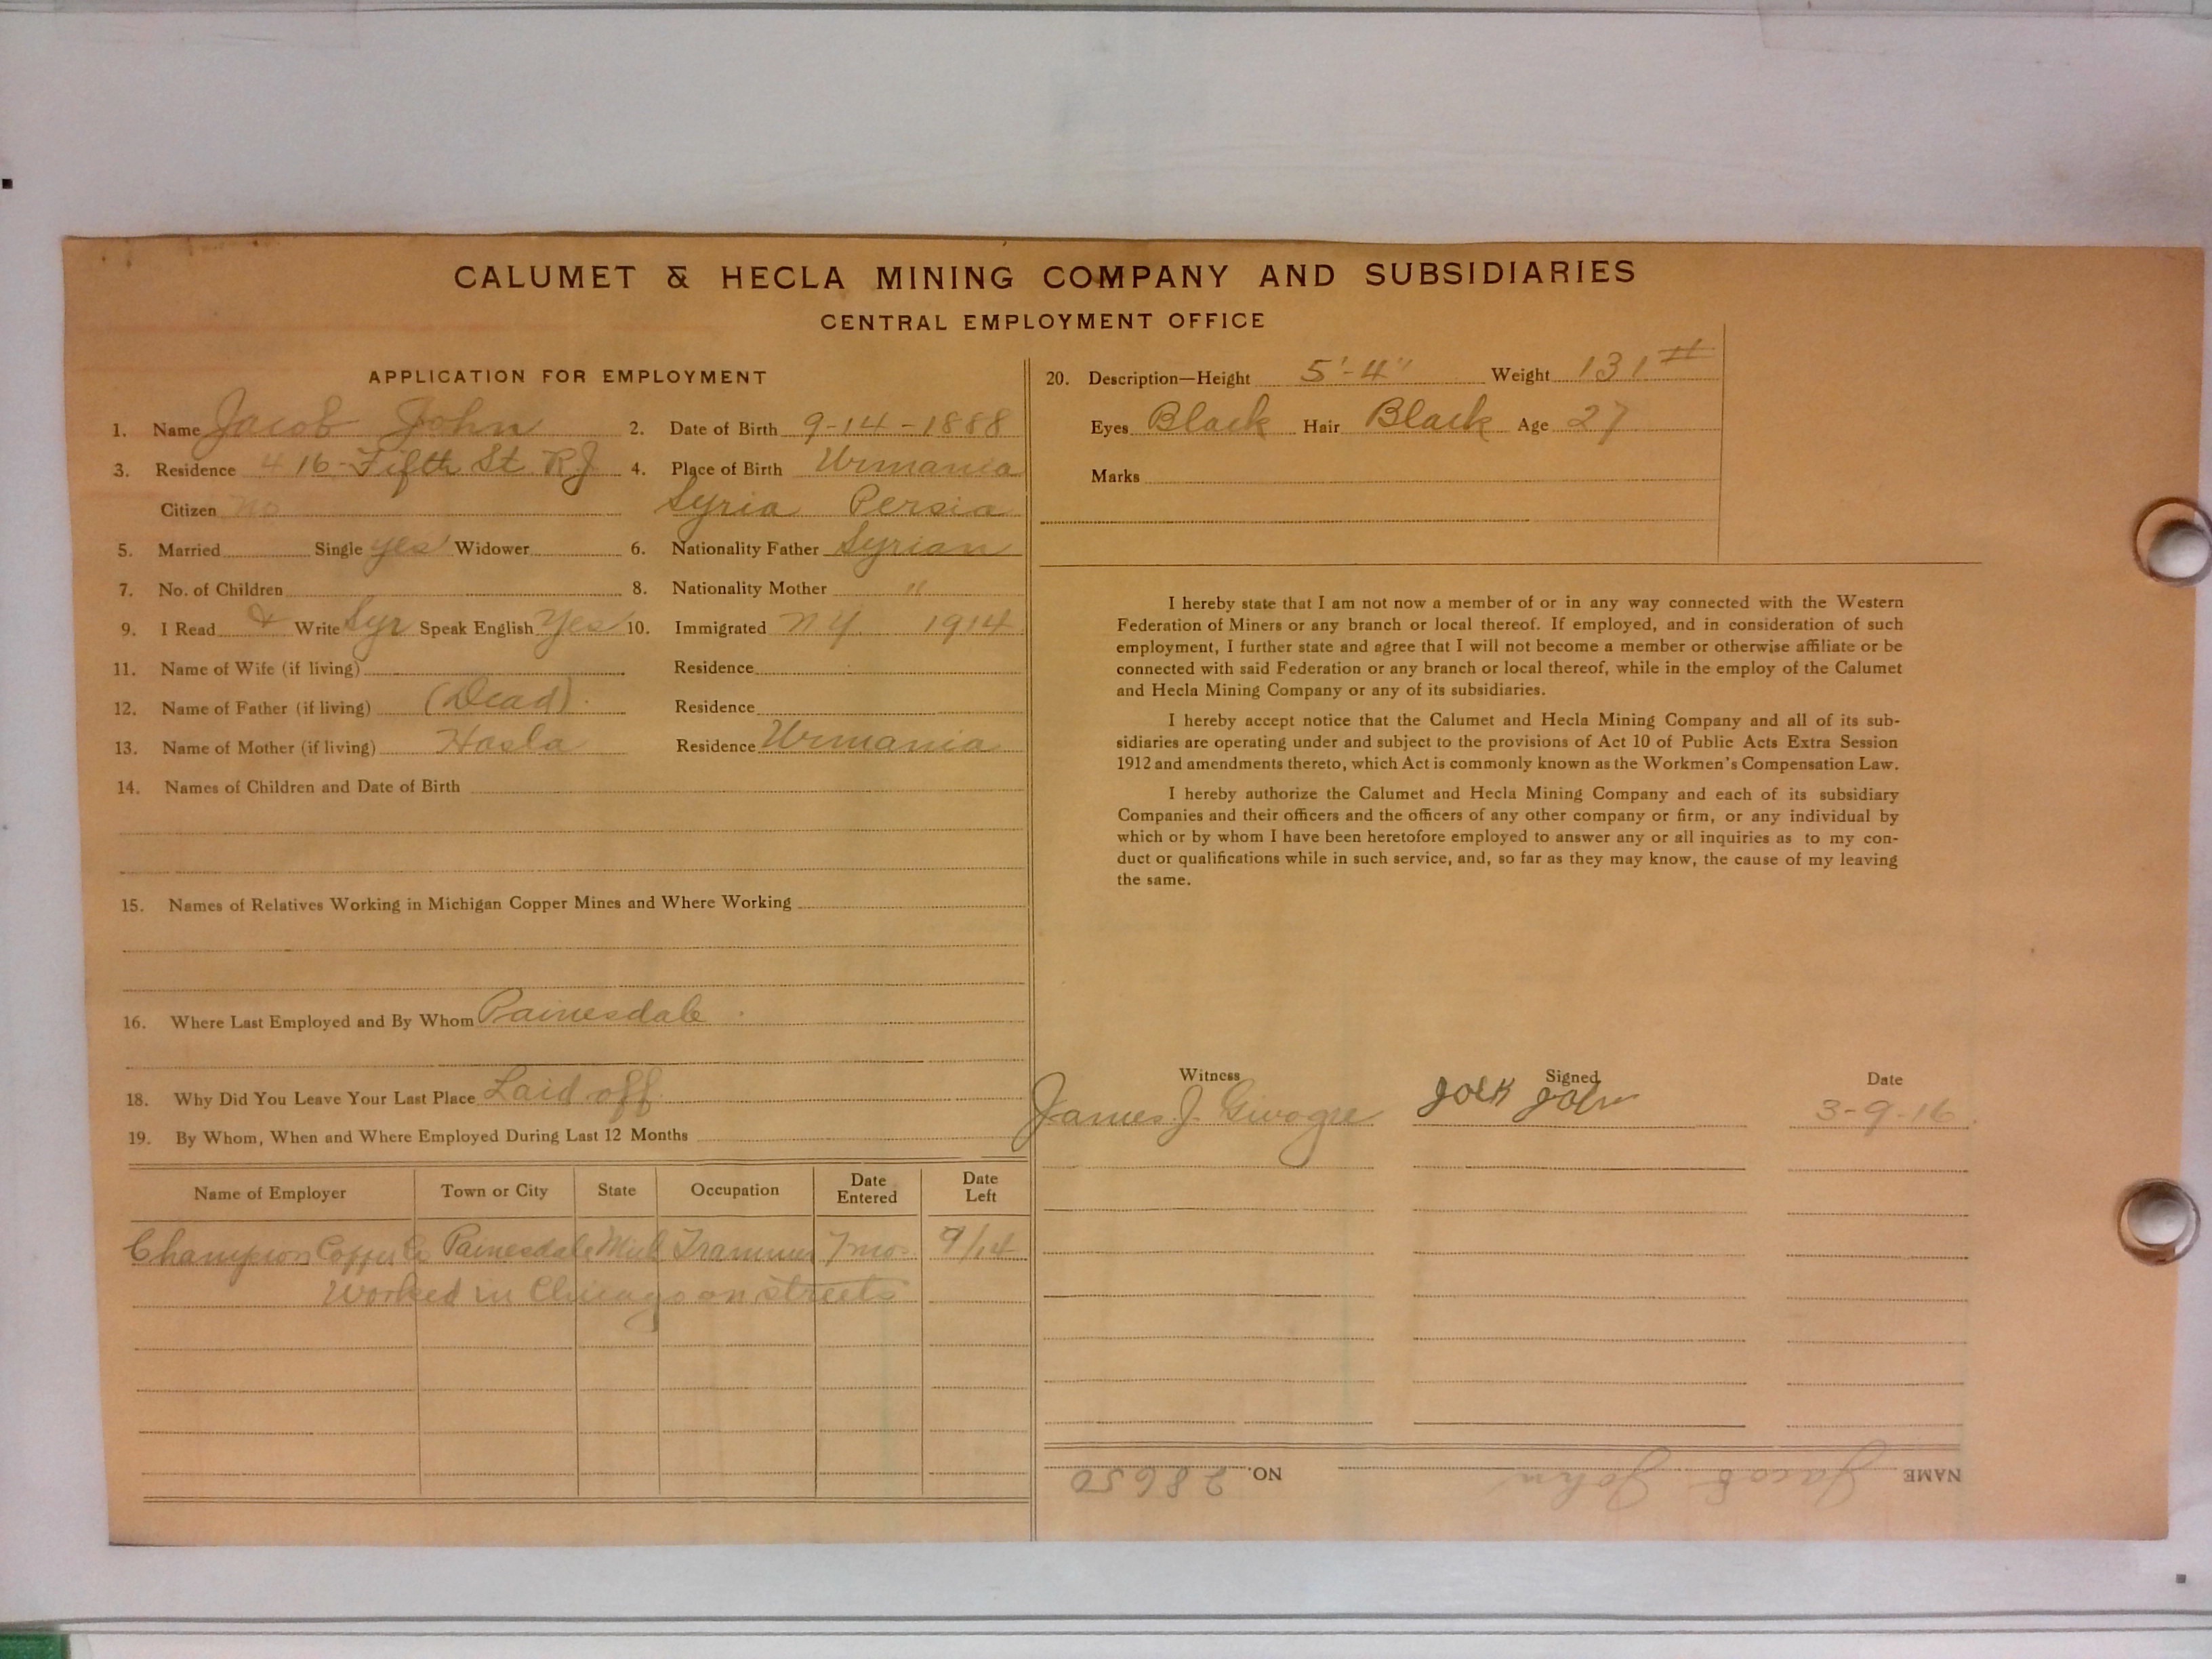 CALUMET & HECLA MINING COMPANY AND SUBSIDIARIES
CENTRAL EMPLOYMENT OFFICE
APPLICATION FOR EMPLOYMENT
1. Name Jacob John 2. Date of Birth 9-14-1888
3. Residence 416-Fifth St. R.J. 4. Place of Birth Urmania
Citizen no Syria Persia
5. Married Single yes Widower 6. Nationality Father Syrian
7. No. of Children 8. Nationality Mother "
9. I Read & Write Syr Speak English Yes 10. Immigrated N.Y. 1914
11. Name of Wife (if living) Residence
12. Name of Father (if living) (Dead) Residence
13. Name of Mother (if living) Hasla Residence Urmania
14. Names of Children and Date of Birth
15. Names of Relatives Working in Michigan Copper Mines and Where Working
16. Where Last Employed and By Whom Painesdale
18. Why Did You Leave Your Last Place Laid off
19. By Whom, When and Where Employed During Last 12 Months
Name of Employer Town or City State Occupation Date Entered Date Left
Champion Copper Co Painesdale Mich Trammer 7 mo- 9/14
Worked in Chicago on streets
20. Description—Height 5'-4" Weight 131#
Eyes Black Hair Black Age 27
Marks
I hereby state that I am not now a member of or in any way connected with the Western
Federation of Miners or any branch or local thereof. If employed, and in consideration of such
employment, I further state and agree that I will not become a member or otherwise affiliate or be
connected with said Federation or any branch or local thereof, while in the employ of the Calumet
and Hecla Mining Company or any of its subsidiaries.
I hereby accept notice that the Calumet and Hecla Mining Company and all of its sub-
sidiaries are operating under and subject to the provisions of Act 10 of Public Acts Extra Session
1912 and amendments thereto, which Act is commonly known as the Workmen's Compensation Law.
I hereby authorize the Calumet and Hecla Mining Company and each of its subsidiary
Companies and their officers and the officers of any other company or firm, or any individual by
which or by whom I have been heretofore employed to answer any or all inquiries as to my con-
duct or qualifications while in such service, and, so far as they may know, the cause of my leaving
the same.
Witness Signed Date
James J. John 3-9-16
NAME Jacob John NO. 28650